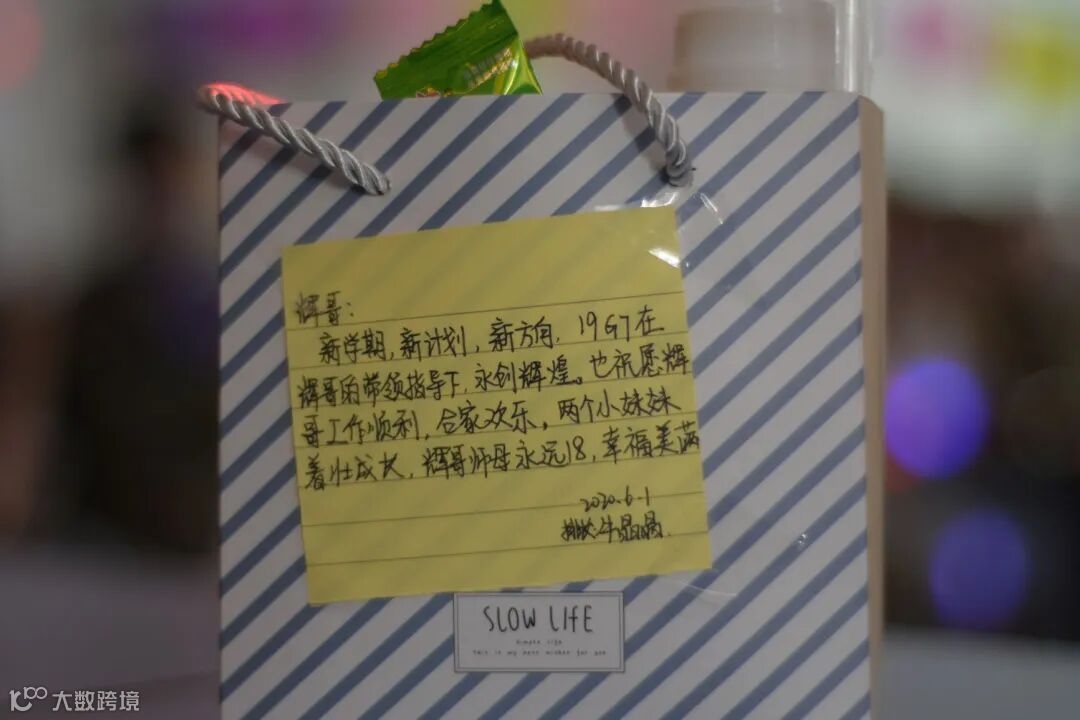 辉哥：
新学期，新计划，新方向，19G7在
辉哥的带领指导下，永创辉煌。也祝愿辉
哥工作顺利，合家欢乐，两个小妹妹
着壮成长，辉哥师母永远18，幸福美满
2020.6.1
牛晶晶.
SLOW LIFE
Simple life
This is my best wishes for you
大数跨境